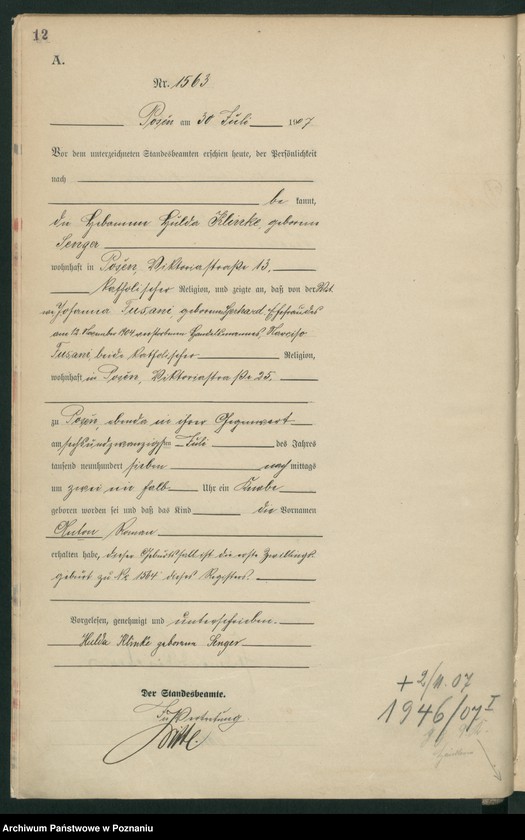 12
A.
Nr. 1563
Posen am 30 Juli 1907
Vor dem unterzeichneten Standesbeamten erschien heute, der Persönlichkeit
nach
be kannt,
die Hebamme Hulda Klinke, geborene
Senger
wohnhaft in Posen, Viktoriastraße 13,
katholischer Religion, und zeigte an, daß von der
Johanna Tusani geborenen Gerhard, Ehefrau des
am 12. November 1904 verstorbenen Handelsmannes, Narciso
Tusani, beide katholischer Religion,
wohnhaft in Posen, Viktoriastraße 25,
zu Posen, ebenda in ihrer Gegenwart
am sechsundzwanzigsten Juli des Jahres
tausend neunhundert sieben nach mittags
um zwei ein halb Uhr ein Knabe
geboren worden sei und daß das Kind die Vornamen
Anton Roman
erhalten habe, dieser Geburtsfall ist die erste Zwillings-
geburt zu Nr 1564 dieses Registers.
Vorgelesen, genehmigt und unterschrieben.
Hulda Klinke geborene Senger
Der Standesbeamte.
In Vertretung.
+ 2/11. 07
1946/07 I
Archiwum Państwowe w Poznaniu